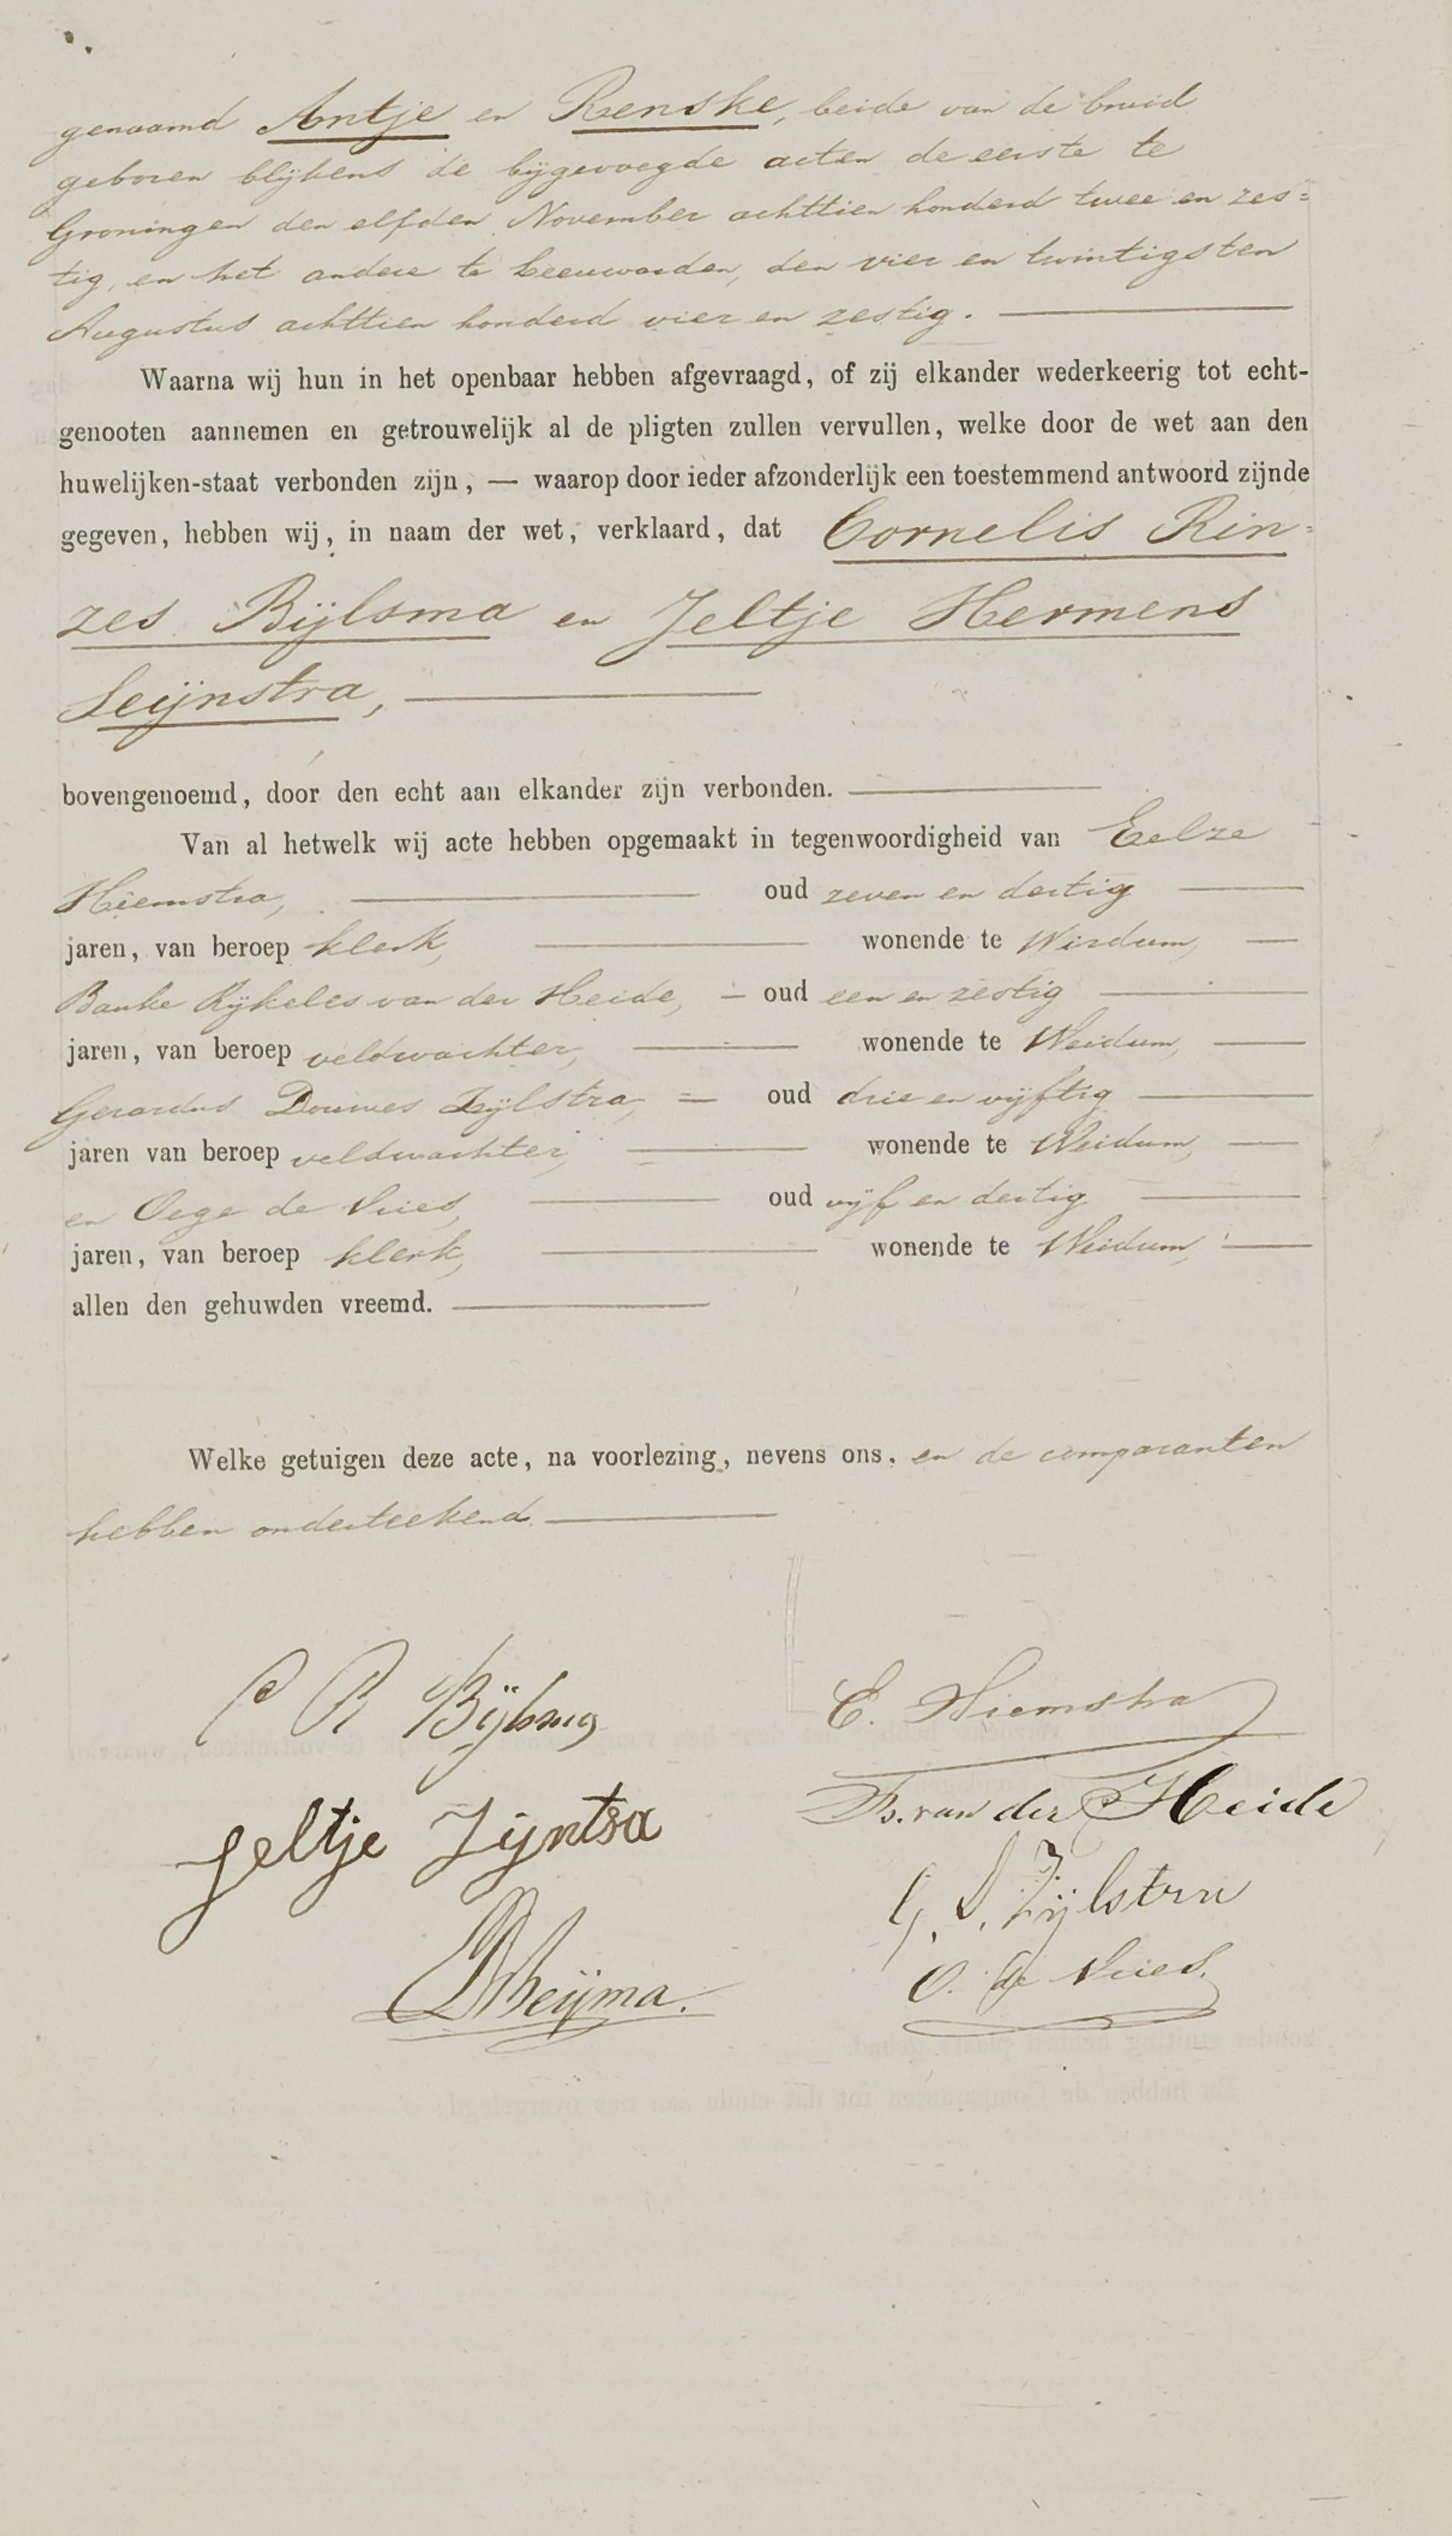 genaamd Antje en Renske, beide van de bruid
geboren blijkens de bijgevoegde acten de eerste te
Groningen den elfden November achttien honderd twee en zes=
tig, en het andere te Leeuwarden, den vier en twintigsten
Augustus achttien honderd vier en zestig.
Waarna wij hun in het openbaar hebben afgevraagd, of zij elkander wederkeerig tot echt-
genooten aannemen en getrouwelijk al de pligten zullen vervullen, welke door de wet aan den
huwelijken-staat verbonden zijn, — waarop door ieder afzonderlijk een toestemmend antwoord zijnde
gegeven, hebben wij, in naam der wet, verklaard, dat Cornelis Rin=
zes Bijlsma en Jeltje Hermens
Leijnstra,
bovengenoemd, door den echt aan elkander zijn verbonden.
Van al hetwelk wij acte hebben opgemaakt in tegenwoordigheid van Eelze
Hiemstra, oud zeven en dertig
jaren, van beroep klerk, wonende te Wirdum,
Bauke Rijkeles van der Heide, oud een en zestig
jaren, van beroep veldwachter, wonende te Weidum,
Gerardus Douwes Zijlstra, oud drie en vijftig
jaren van beroep veldwachter, wonende te Weidum,
en Oege de Vries, oud vijf en dertig
jaren, van beroep klerk, wonende te Weidum,
allen den gehuwden vreemd.
Welke getuigen deze acte, na voorlezing, nevens ons, en de comparanten
hebben onderteekend
C R Bijlsma
E. Hiemstra
Jeltje Lijntsa
B. van der Heide
G. D. Zijlstra
O. de Vries.